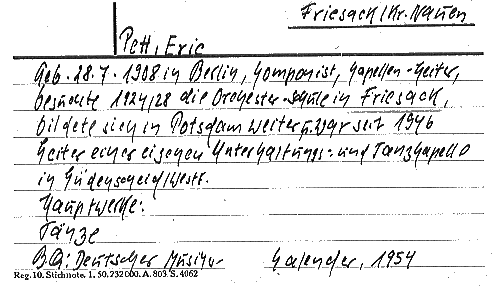 Friesack/Kr. Nauen
Pett, Eric
Geb. 28.7.1908 in Berlin, Komponist, Kapellen-Leiter,
besuchte 1924/28 die Orchester-Schule in Friesack,
bildete sich in Potsdam weiter u. war seit 1946
Leiter einer eigenen Unterhaltungs- und Tanzkapelle
in Lüdenscheid/Westf.
Hauptwerke:
Tänze
B.Q.: Deutscher Musiker-Kalender, 1954
Reg. 10. Stichnote. 1. 50. 232 000. A. 803 S. 4062